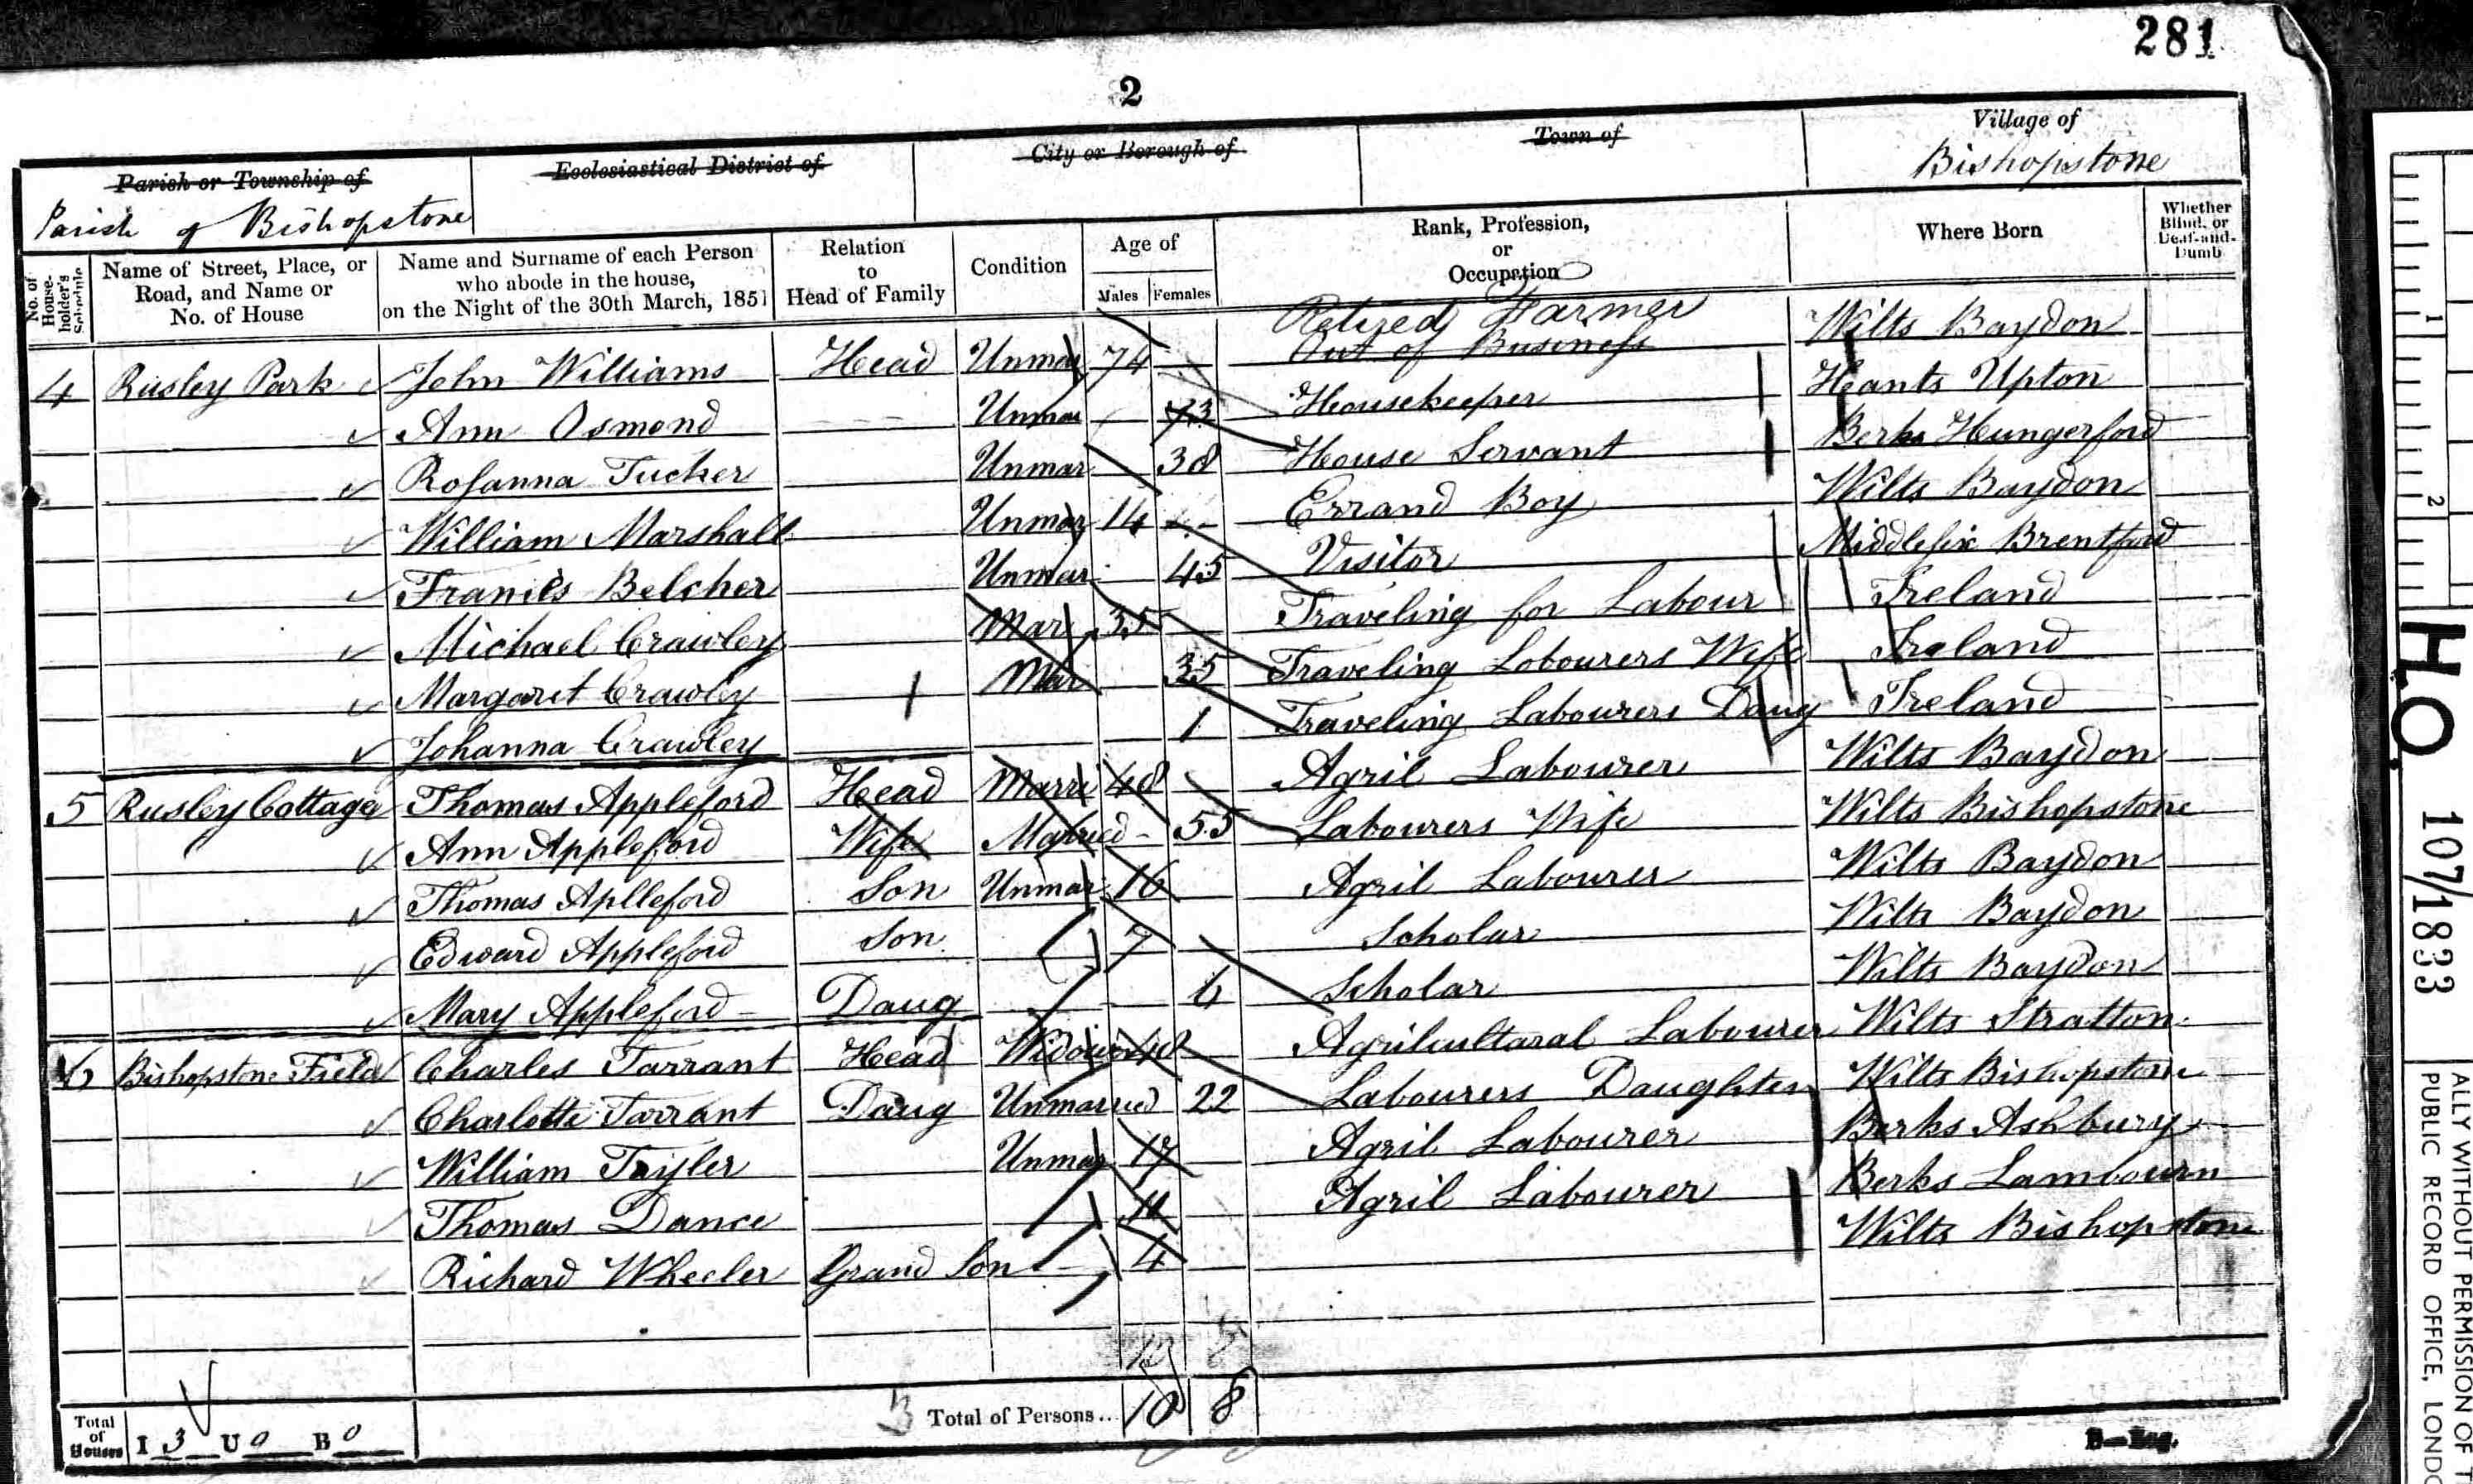 281
2
Parish or Township of Ecclesiastical District of City or Borough of Town of Village of
Parish of Bishopstone Bishopstone
No. of House-holder's Schedule Name of Street, Place, or Road, and Name or No. of House Name and Surname of each Person who abode in the house, on the Night of the 30th March, 1851 Relation to Head of Family Condition Age of Males Females Rank, Profession, or Occupation Where Born Whether Blind, or Deaf-and-Dumb
Retired Farmer
4 Rusley Park John Williams Head Unmar 74 — Out of Business Wilts Baydon
Ann Osmond Unmar 73 Housekeeper Hants Upton
Rosanna Tucker Unmar 38 House Servant Berks Hungerford
William Marshall Unmar 14 Errand Boy Wilts Baydon
Francis Belcher Unmar 45 Visitor Middlesex Brentford
Michael Crawley Mar 35 Traveling for Labour Ireland
Margaret Crawley Mar 35 Traveling Lobourers Wife Ireland
Johanna Crawley 1 Traveling Labourers Daug Ireland
5 Rusley Cottage Thomas Appleford Head Marri 48 Agril Labourer Wilts Baydon
Ann Appleford Wife Married 55 Labourers Wife Wilts Bishopstone
Thomas Aplleford Son Unmar 16 Agril Labourer Wilts Baydon
Edward Appleford Son 7 Scholar Wilts Baydon
Mary Appleford Daug 6 Scholar Wilts Baydon
6 Bishopstone Field Charles Tarrant Head Widower 48 Agrilcultaral Labourer Wilts Stratton
Charlotte Tarrant Daug Unmarried 22 Labourers Daughter Wilts Bishopstone
William Tayler Unmar 17 Agril Labourer Berks Ashbury
Thomas Dance 11 Agril Labourer Berks Lambourn
Richard Wheeler Grand Son 4 Wilts Bishopstone
Total of Houses I 3 U 0 B 0 Total of Persons... 10 8
1
2
H.O. 107/1833
ALLY WITHOUT PERMISSION OF T
PUBLIC RECORD OFFICE, LONDO